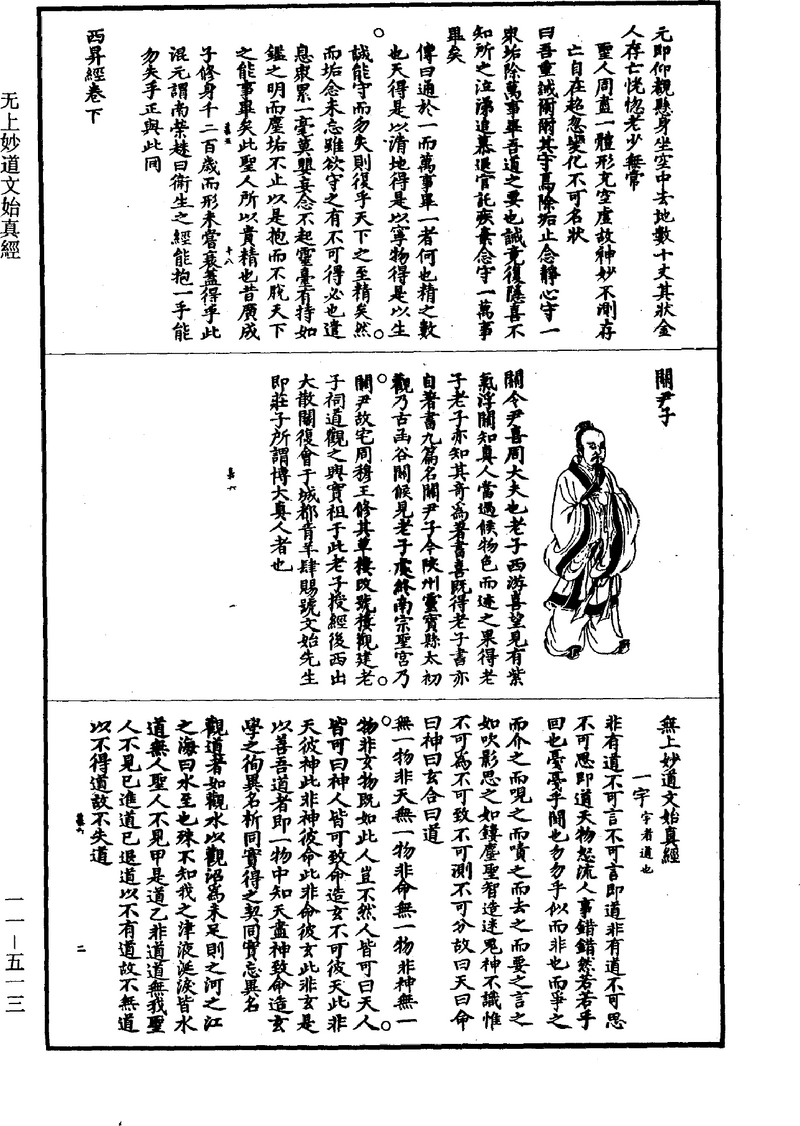 元即仰觀懸身坐空中去地數十丈其狀金
人存亡恍惚老少無常
聖人周盡一體形充空虛故神妙不測存
亡自在超忽變化不可名狀
曰吾重誡爾爾其守焉除垢止念靜心守一
眾垢除萬事畢吾道之要也誡竟復隱喜不
知所之泣涕追慕退官託疾棄念守一萬事
畢矣
傳曰通於一而萬事畢一者何也精之數
也天得是以清地得是以寧物得是以生
誠能守而勿失則復乎天下之至精矣然
而垢念未忘雖欲守之有不可得必也遣
息眾累一毫莫嬰妄念不起靈臺有持如
鑑之明而塵垢不止以是抱而不脫天下
之能事畢矣此聖人所以貴精也昔廣成
子修身千二百歲而形未嘗衰蓋得乎此
混元謂南榮趎曰衛生之經能抱一乎能
勿失乎正與此同
西昇經卷下
十八
關尹子
關令尹喜周大夫也老子西游喜望見有紫
氣浮關知真人當過候物色而迹之果得老
子老子亦知其奇為著書喜既得老子書亦
自著書九篇名關尹子今陝州靈寶縣太初
觀乃古函谷關候見老子處終南宗聖宮乃
關尹故宅周穆王修其草樓改號樓觀建老
子祠道觀之興實祖于此老子授經後西出
大散關復會于成都青羊肆賜號文始先生
即莊子所謂博大真人者也
一
無上妙道文始真經
一宇 宇者道也
非有道不可言不可言即道非有道不可思
不可思即道天物怒流人事錯錯然若若乎
回也戞戞乎鬪也勿勿乎似而非也而爭之
而介之而哯之而嘖之而去之而要之言之
如吹影思之如鏤塵聖智造迷鬼神不識惟
不可為不可致不可測不可分故曰天曰命
曰神曰玄合曰道
無一物非天無一物非命無一物非神無一
物非玄物既如此人豈不然人皆可曰天人
皆可曰神人皆可致命造玄不可彼天此非
天彼神此非神彼命此非命彼玄此非玄是
以善吾道者即一物中知天盡神致命造玄
學之徇異名析同實得之契同實忘異名
觀道者如觀水以觀沼為未足則之河之江
之海曰水至也殊不知我之津液涎淚皆水
道無人聖人不見甲是道乙非道道無我聖
人不見己進道己退道以不有道故不無道
以不得道故不失道
二
无上妙道文始真經
一一—五一三